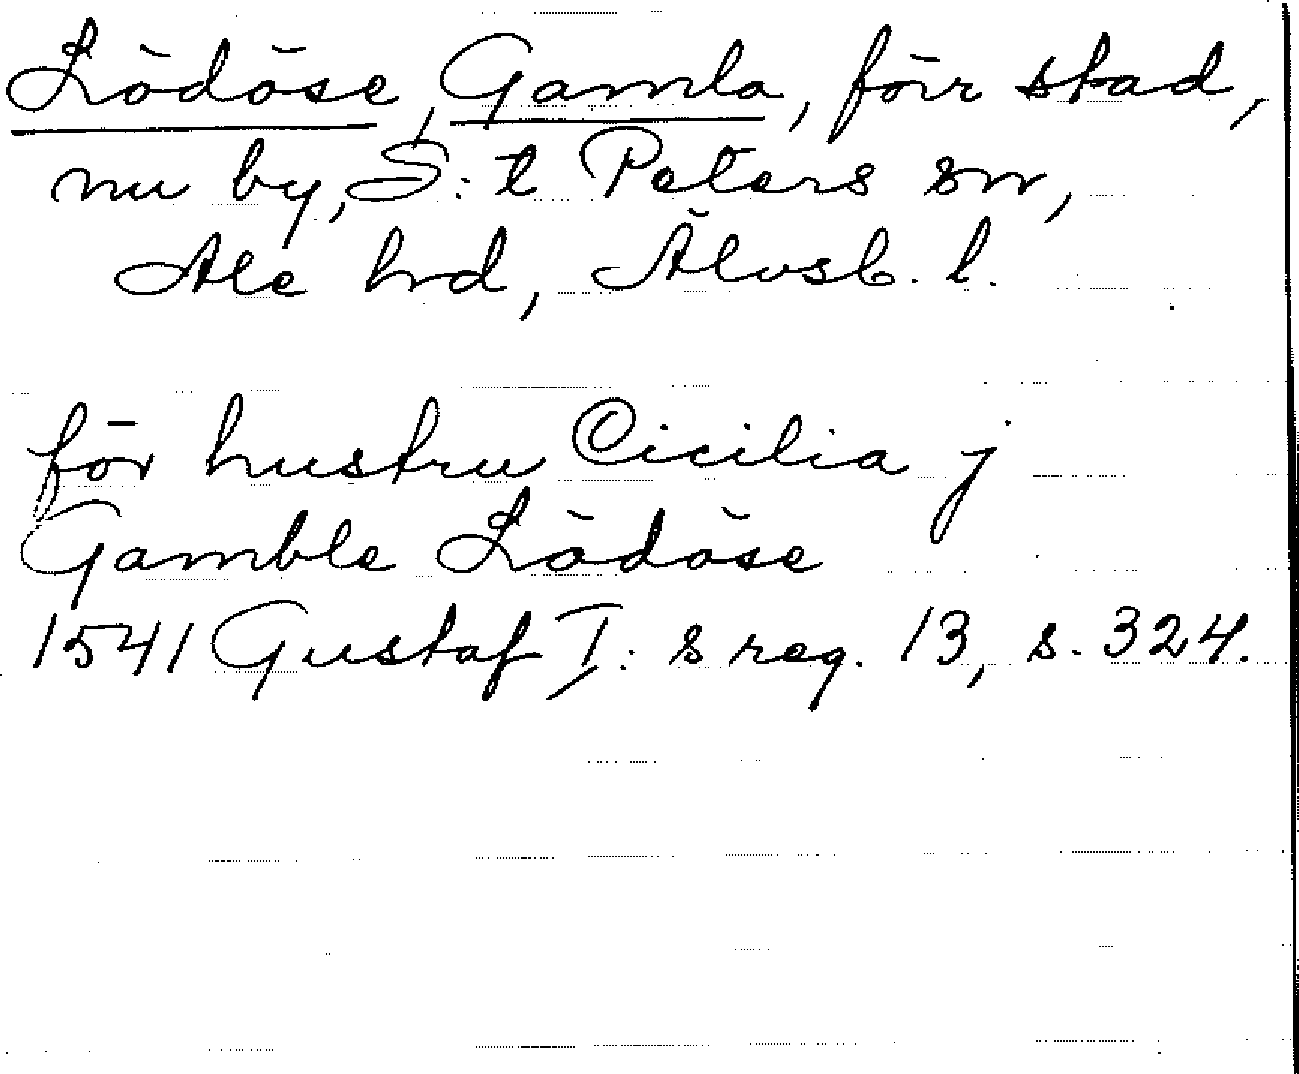 Lödöse, Gamla, förr stad,
nu by, S:t Peters sn,
Ale hd, Älvsb. l.
för hustru Cicilia j
Gamble Lödöse
1541 Gustaf I:s reg. 13, s. 324.